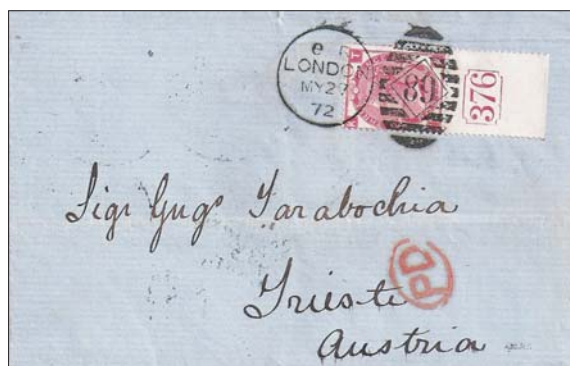 LONDON
MY
72
T
89
376
Sigr Gugo Tarabochia
PD
Trieste
Austria